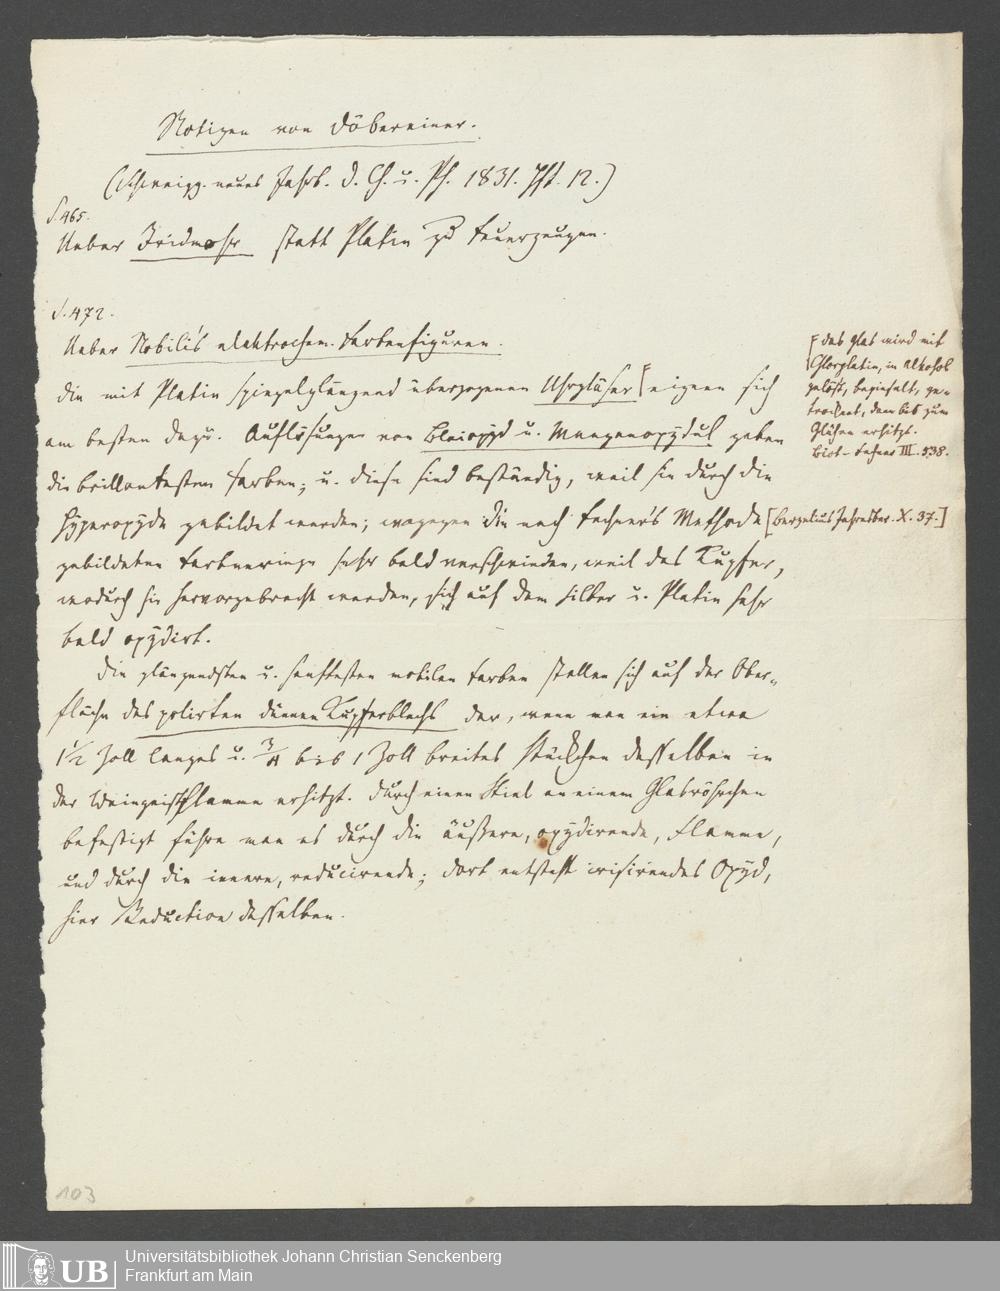 Notizen von Döbereiner.
(Schweigg. neues Jahrb. d. Ch. u. Ph. 1831. Hft. 12.)
S. 465.
Ueber Iridmohr statt Platin zu Feuerzeugen.
S. 472.
Ueber Nobili's elektrochem. Farbenfiguren.
Die mit Platin spiegelglänzend überzogenen Uhrgläser [eignen sich
am besten dazu. Auflösungen von Bleioxyd u. Manganoxydul geben
die brillantesten Farben; u. diese sind beständig, weil sie durch die
Hyperoxyde gebildet werden; wogegen die nach Fechner's Methode [Berzelius Jahresber. X. 37.]
gebildeten Farbenringe sehr bald verschwinden, weil das Kupfer,
wodurch sie hervorgebracht werden, sich auf dem Silber u. Platin sehr
bald oxydirt.
Die glänzendsten u. sanftesten mobilen Farben stellen sich auf der Ober-
fläche des polirten dünnen Kupferblechs dar, wenn man ein etwa
1 1/2 Zoll langes u. 3/4 bis 1 Zoll breites Stückchen desselben in
der Weingeistflamme erhitzt. Durch einen Stiel an einem Glasröhrchen
befestigt führe man es durch die äußere, oxydirende, Flamme,
und durch die innere, reducirende; dort entsteht irisirendes Oxyd,
hier Reduction desselben.
[das Glas wird mit
Chlorplatin, in Alkohol
gelöst, bepinselt, ge-
trocknet, dann bis zum
Glühen erhitzt.
Biot-Fechner III. 538.
103
Universitätsbibliothek Johann Christian Senckenberg
Frankfurt am Main
UB